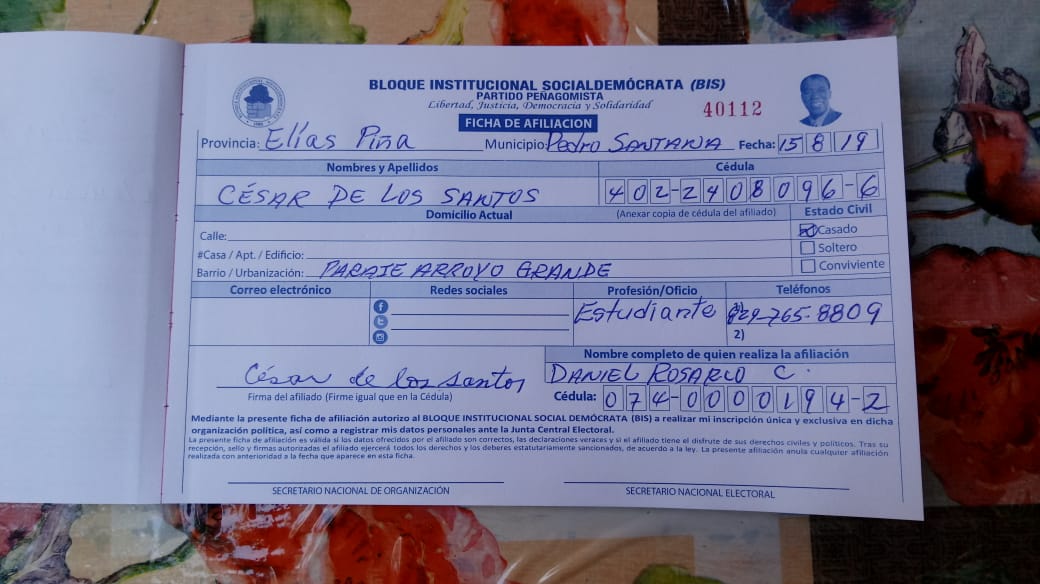 BLOQUE INSTITUCIONAL SOCIALDEMÓCRATA (BIS)
PARTIDO PEÑAGOMISTA
Libertad, Justicia, Democracia y Solidaridad
40112
FICHA DE AFILIACION
Provincia: Elías Piña Municipio: Pedro SANTANA Fecha: 15 8 19
Nombres y Apellidos Cédula
CÉSAR DE LOS SANTOS 402-2408096-6
Domicilio Actual (Anexar copia de cédula del afiliado) Estado Civil
Calle: Casado
#Casa / Apt. / Edificio: Soltero
Barrio / Urbanización: PARAJE ARROYO GRANDE Conviviente
Correo electrónico Redes sociales Profesión/Oficio Teléfonos
Estudiante 1) 829-765-8809
2)
Nombre completo de quien realiza la afiliación
César de los santos DANIEL ROSARIO C.
Firma del afiliado (Firme igual que en la Cédula) Cédula: 074-0000194-2
Mediante la presente ficha de afiliación autorizo al BLOQUE INSTITUCIONAL SOCIAL DEMÓCRATA (BIS) a realizar mi inscripción única y exclusiva en dicha
organización política, así como a registrar mis datos personales ante la Junta Central Electoral.
La presente ficha de afiliación es válida si los datos ofrecidos por el afiliado son correctos, las declaraciones veraces y si el afiliado tiene el disfrute de sus derechos civiles y políticos. Tras su
recepción, sello y firmas autorizadas el afiliado ejercerá todos los derechos y los deberes estatutariamente sancionados, de acuerdo a la ley. La presente afiliación anula cualquier afiliación
realizada con anterioridad a la fecha que aparece en esta ficha.
SECRETARIO NACIONAL DE ORGANIZACIÓN SECRETARIO NACIONAL ELECTORAL